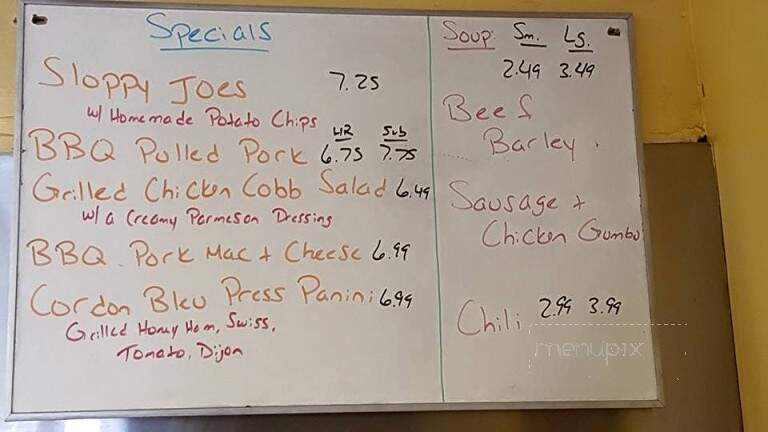 Specials
Sloppy Joes 7.25
w/ Homemade Potato Chips
HR Sub
BBQ Pulled Pork 6.75 7.75
Grilled Chicken Cobb Salad 6.49
w/ a Creamy Parmeson Dressing
BBQ Pork Mac + Cheese 6.99
Cordon Bleu Press Panini 6.99
Grilled Honey Ham, Swiss,
Tomato, Dijon
Soup: Sm. Lg.
2.49 3.49
Beef
Barley
Sausage +
Chicken Gumbo
Chili 2.99 3.99
menupix